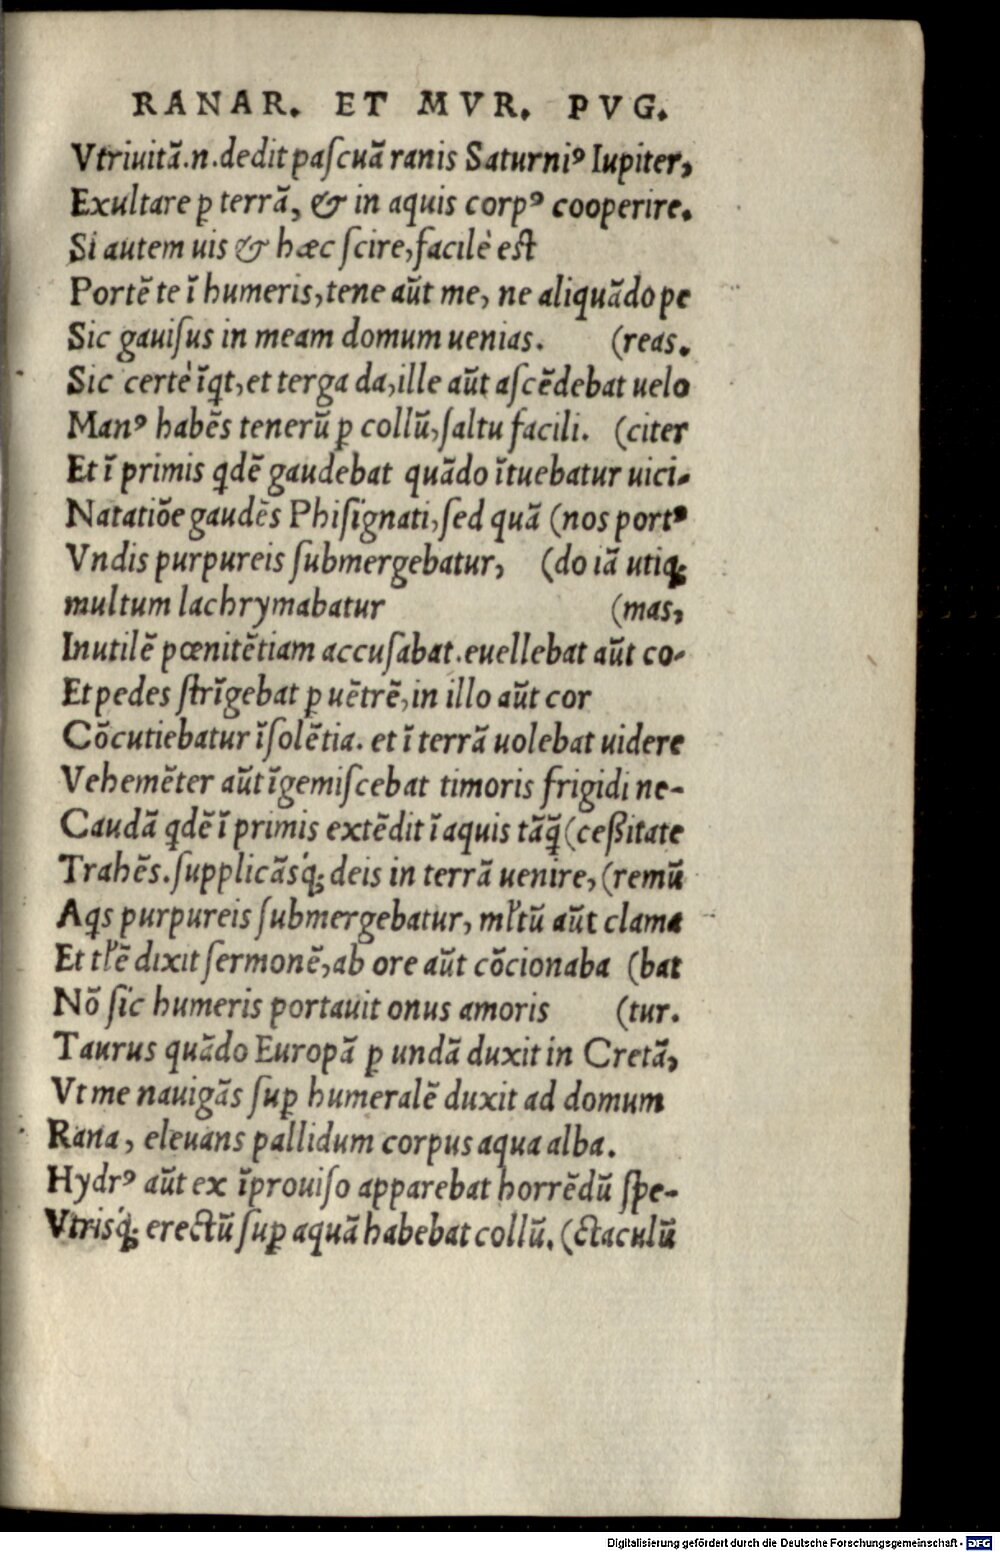 RANAR. ET MVR. PVG.
Vtriuitā.n.dedit paſcuā ranis Saturniꝰ Iupiter,
Exultare ꝑ terrā, & in aquis corpꝰ cooperire.
Si autem uis & hæc ſcire,facilè eſt
Portē te ī humeris,tene aūt me, ne aliquādo pe
Sic gauiſus in meam domum uenias. (reas.
Sic certè īqt,et terga da,ille aūt aſcēdebat uelo
Manꝰ habēs tenerū ꝑ collū,ſaltu facili. (citer
Et ī primis qdē gaudebat quādo ītuebatur uici-
Natatiōe gaudēs Phiſignati,ſed quā (nos portꝰ
Vndis purpureis ſubmergebatur, (do iā utiq;
multum lachrymabatur (mas,
Inutilē pœnitētiam accuſabat.euellebat aūt co-
Et pedes ſtrīgebat ꝑ uētrē,in illo aūt cor
Cōcutiebatur īſolētia. et ī terrā uolebat uidere
Vehemēter aūt īgemiſcebat timoris frigidi ne-
Caudā qdē ī primis extēdit ī aquis tāq̄ (ceßitate
Trahēs.ſupplicāsq́; deis in terrā uenire, (remū
Aqs purpureis ſubmergebatur, mľtū aūt clama
Et tľē dixit ſermonē,ab ore aūt cōcionaba (bat
Nō ſic humeris portauit onus amoris (tur.
Taurus quādo Europā ꝑ undā duxit in Cretā,
Vt me nauigās ſuꝑ humeralē duxit ad domum
Rana, eleuans pallidum corpus aqua alba.
Hydrꝰ aūt ex īprouiſo apparebat horrēdū ſpe-
Vtrisq́; erectū ſuꝑ aquā habebat collū. (ctaculū
Digitalisierung gefördert durch die Deutsche Forschungsgemeinschaft - DFG